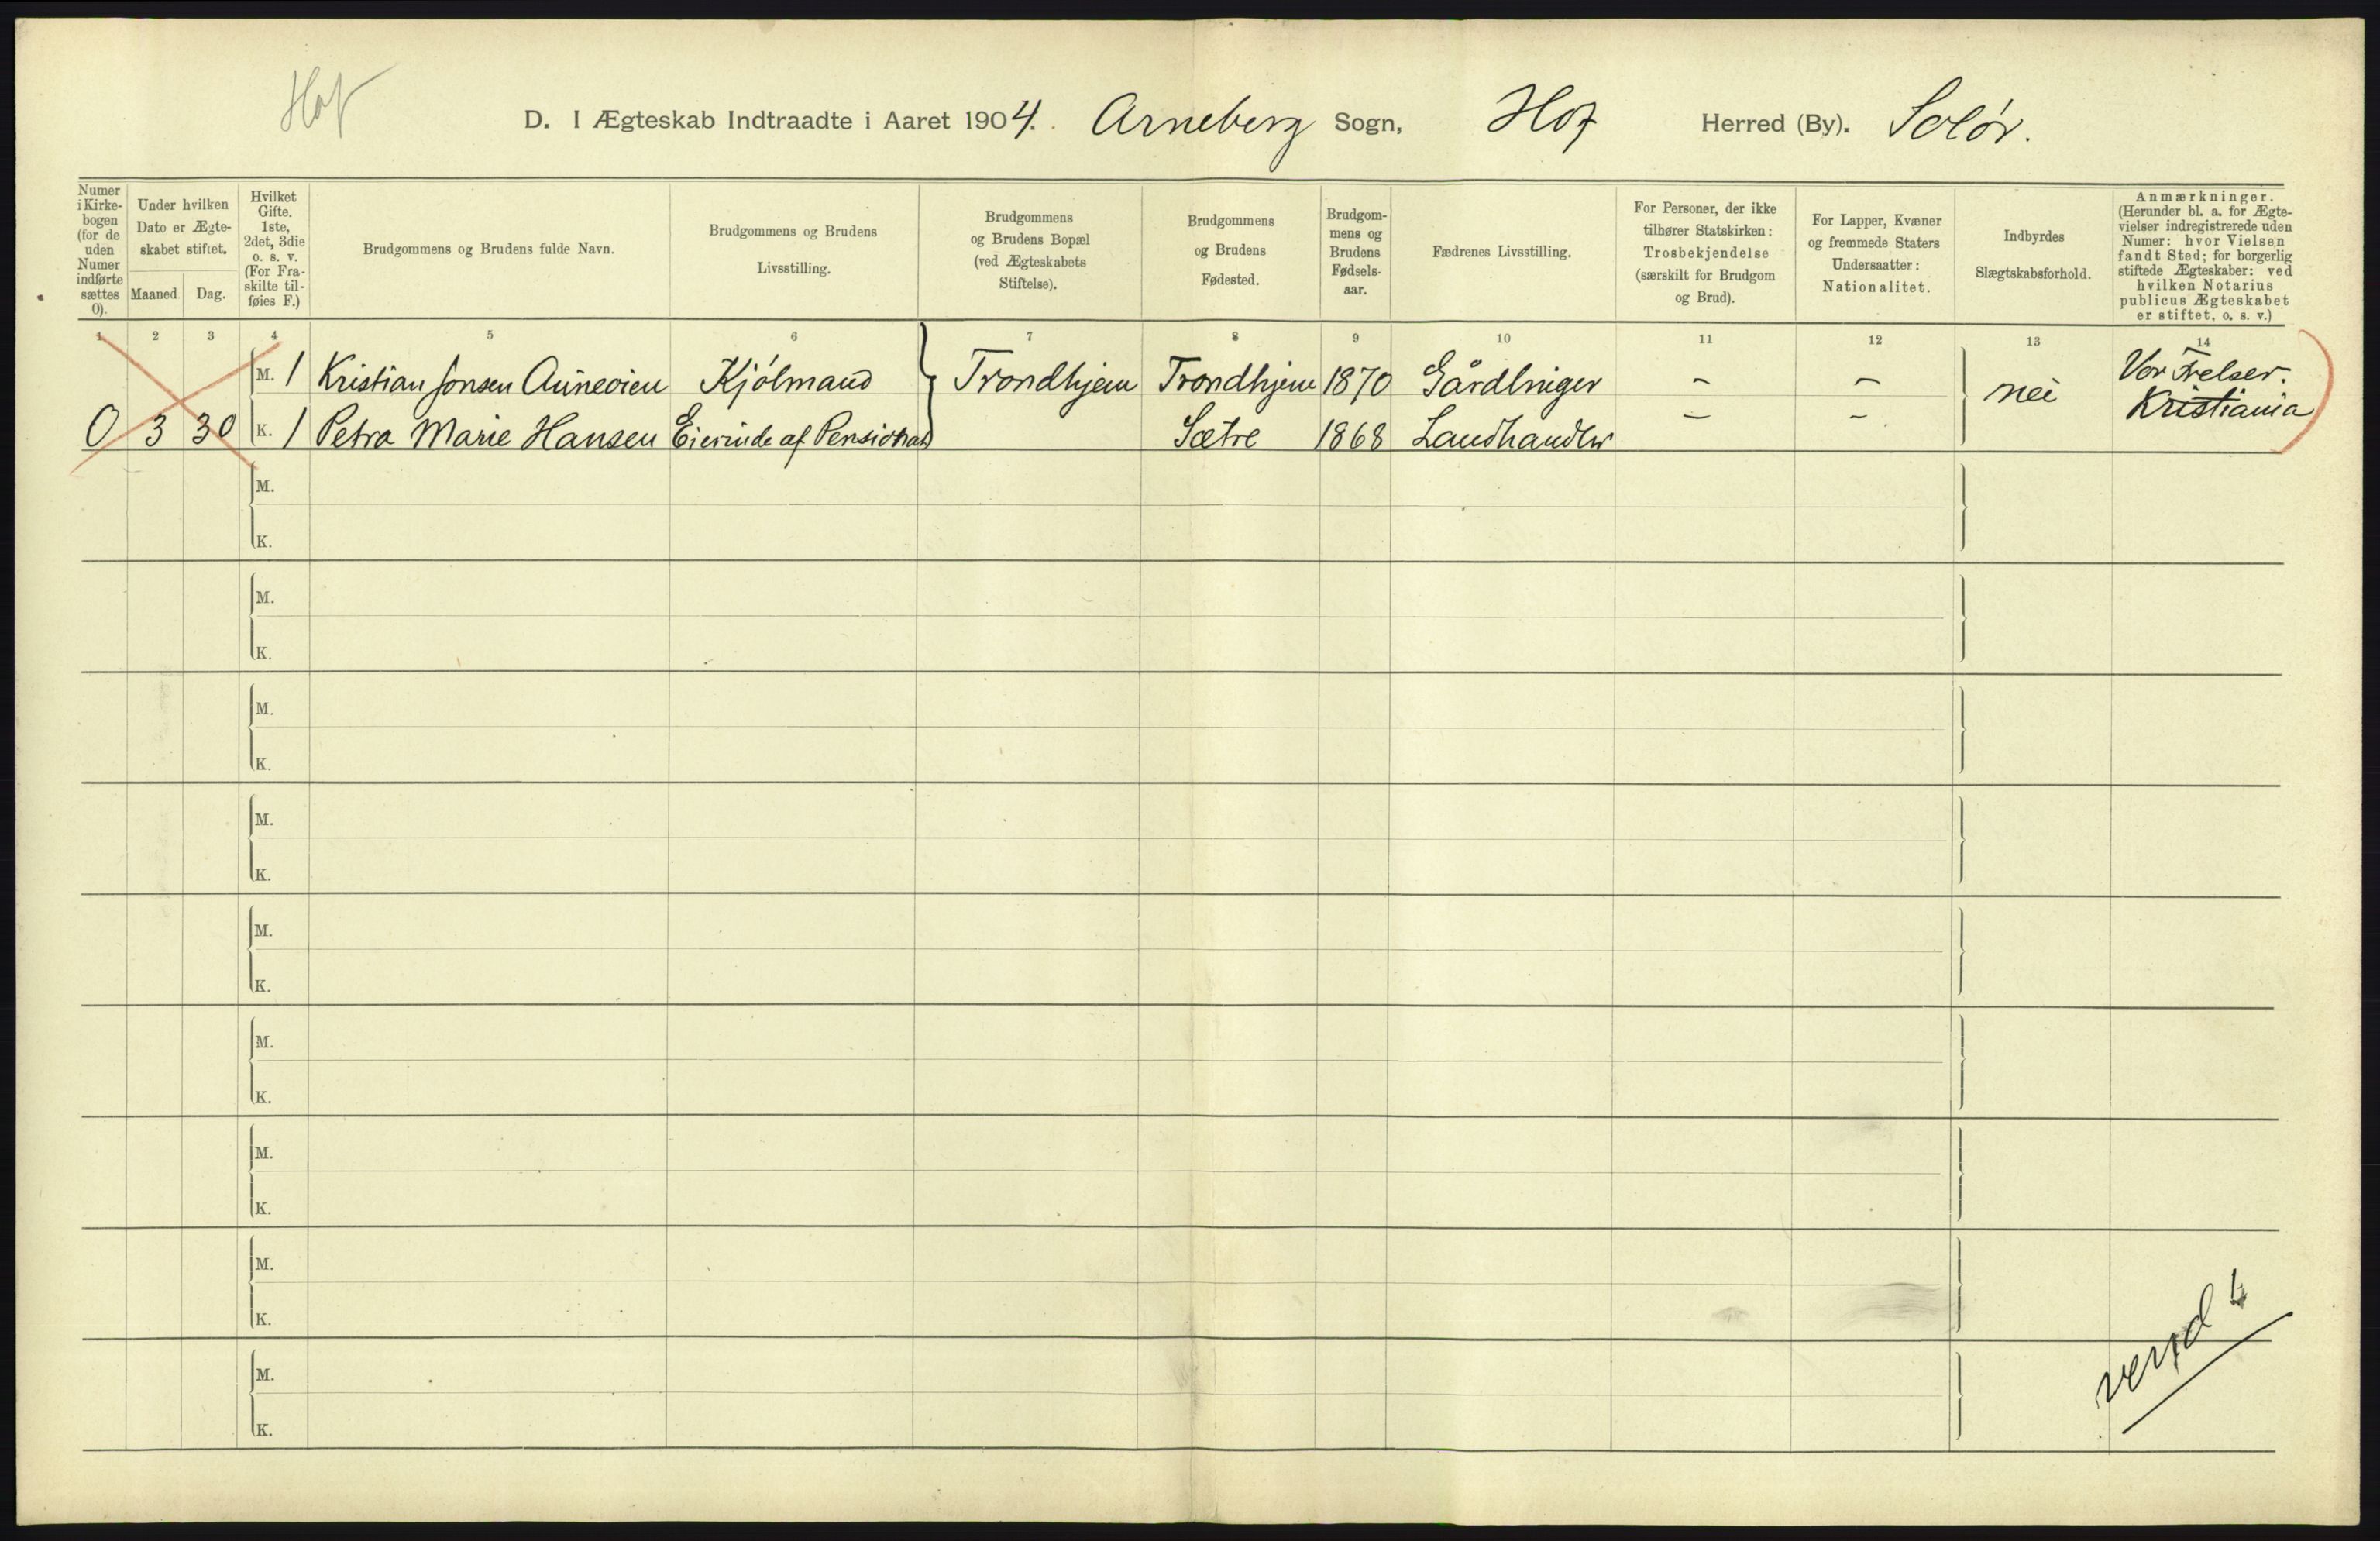 Hof
D. I Ægteskab Indtraadte i Aaret 1904. Arneberg Sogn, Hof Herred (By). Solør.
Numer i Kirkebogen (for de uden Numer indførte sættes 0).
Under hvilken Dato er Ægteskabet stiftet.
Maaned. Dag.
Hvilket Gifte. 1ste, 2det, 3die o. s. v. (For Fraskilte tilføies F.)
Brudgommens og Brudens fulde Navn.
Brudgommens og Brudens Livsstilling.
Brudgommens og Brudens Bopæl (ved Ægteskabets Stiftelse).
Brudgommens og Brudens Fødested.
Brudgommens og Brudens Fødselsaar.
Fædrenes Livsstilling.
For Personer, der ikke tilhører Statskirken: Trosbekjendelse (særskilt for Brudgom og Brud).
For Lapper, Kvæner og fremmede Staters Undersaatter: Nationalitet.
Indbyrdes Slægtskabsforhold.
Anmærkninger. (Herunder bl. a. for Ægtevielser indregistrerede uden Numer: hvor Vielsen fandt Sted; for borgerlig stiftede Ægteskaber: ved hvilken Notarius publicus Ægteskabet er stiftet, o. s. v.)
1 2 3 4 5 6 7 8 9 10 11 12 13 14
M. 1 Kristian Jonsen Aunevien Kjólmand Trondhjem Trondhjem 1870 Gårdbruger - - nei Vor Frelser. Kristiania
0 3 30 K. 1 Petra Marie Hansen Eierinde af Pensionat Sætre 1868 Landhandler - -
M.
K.
M.
K.
M.
K.
M.
K.
M.
K.
M.
K.
M.
K.
M.
K.
M.
K.